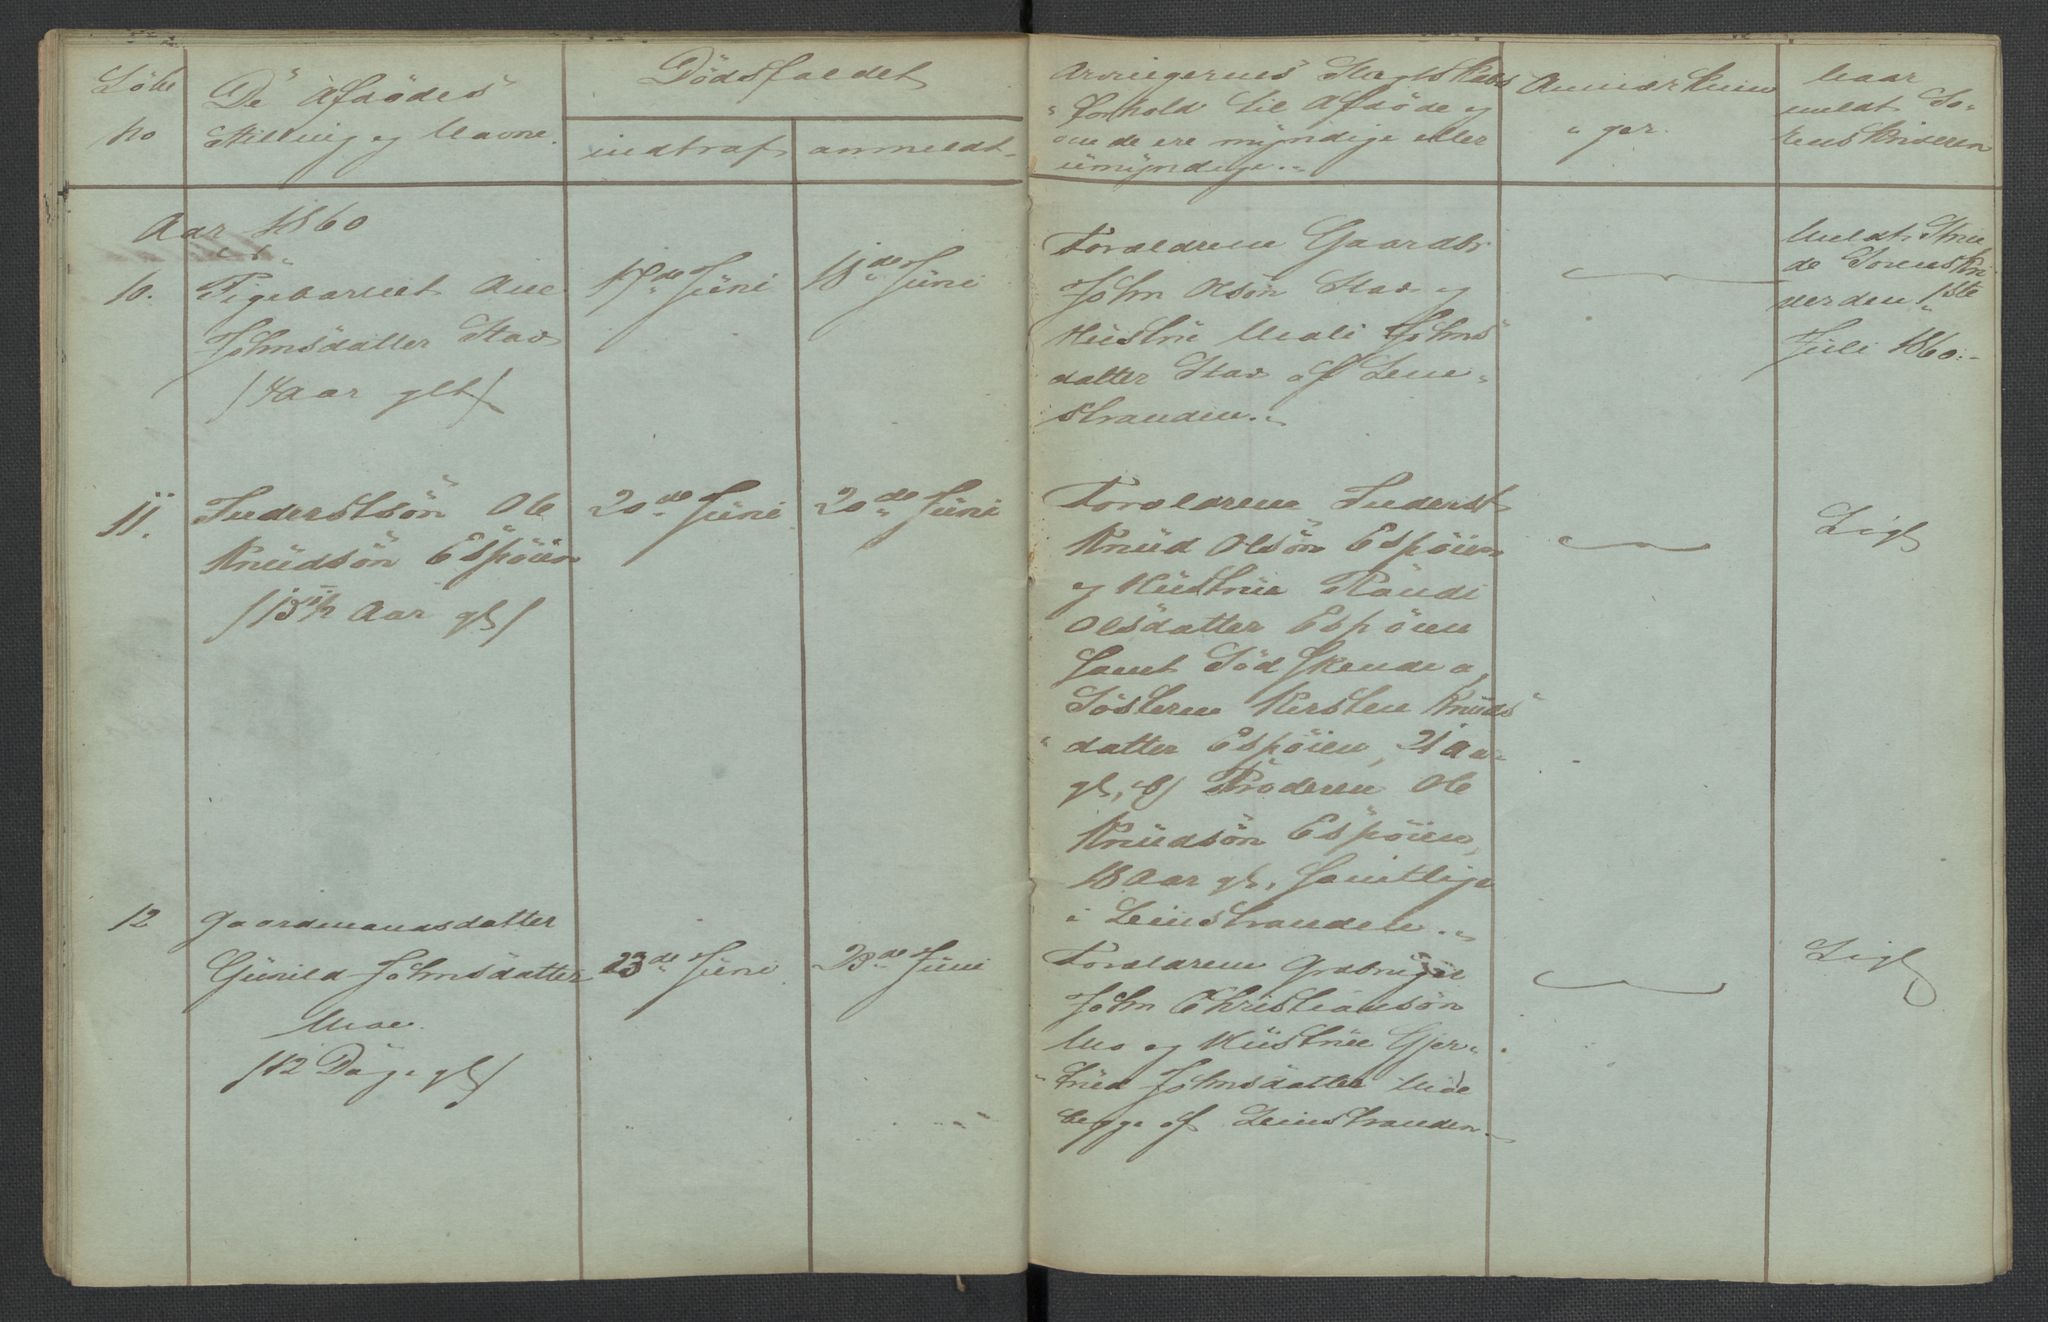 Löbe
No
De Afdödes
Stilling og Navne.
Dödsfaldet
indtraf
anmeldt
Arvingernes Slægtskabs
Forhold til Afdöde og
om de ere myndige eller
umyndige.
Anmærknin
ger.
Naar
meldt So-
renskriveren
Aar 1860
10.
Pigebarnet Ane
Johnsdatter Stav
/ Aar glt/
17de Juni
18de Juni
Forældrene Gaardbr
John Olsön Stav og
Hustrue Mali Johns
datter Stav af Lene-
stranden.
Meldt Strin
de Sorenskri
ver den 1ste
Juli 1860.
11.
Inderstsön Ole
Knudsön Espöien
/13 1/2 Aar gl/
20de Juni
20de Juni
Forældrene Inderst
Knud Olsön Espöien
og Hustrue Randi
Olsdatter Espöien
samt Södskende a,
Söstere Kirsten Knuds
datter Espöien, 21 Aar
gl, b/ Broderen Ole
Knudsön Espöien,
18 Aar gl, samtlige
i Leinstranden.
Ligl
12
Gaardmandsdatter
Gunild Johnsdatter
Moe.
/12 Dage gl/
23de Juni
23de Juni
Forældrene Grdbruger
John Christiansön
Mo og Hustrue Gjer-
trud Johnsdatter Moe
begge af Leinstranden.
Ligl